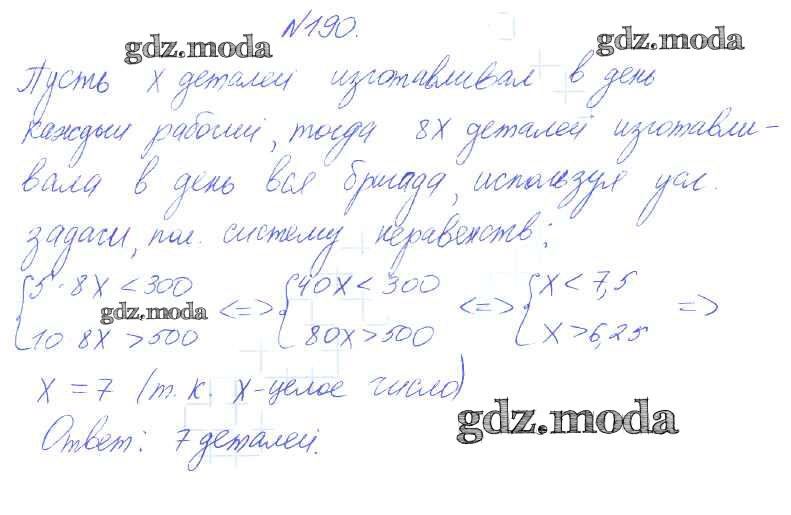 N190.
gdz.moda gdz.moda
Пусть x деталей изготавливал в день
каждый рабочий, тогда 8x деталей изготавли-
вала в день вся бригада, используя усл.
задачи, пол. систему неравенств:
{5·8x<300 <=> {40x<300 <=> {x<7,5 =>
{10 8x>500 {80x>500 {x>6,25
gdz.moda
x=7 (т.к. x-целое число)
gdz.moda
Ответ: 7 деталей.